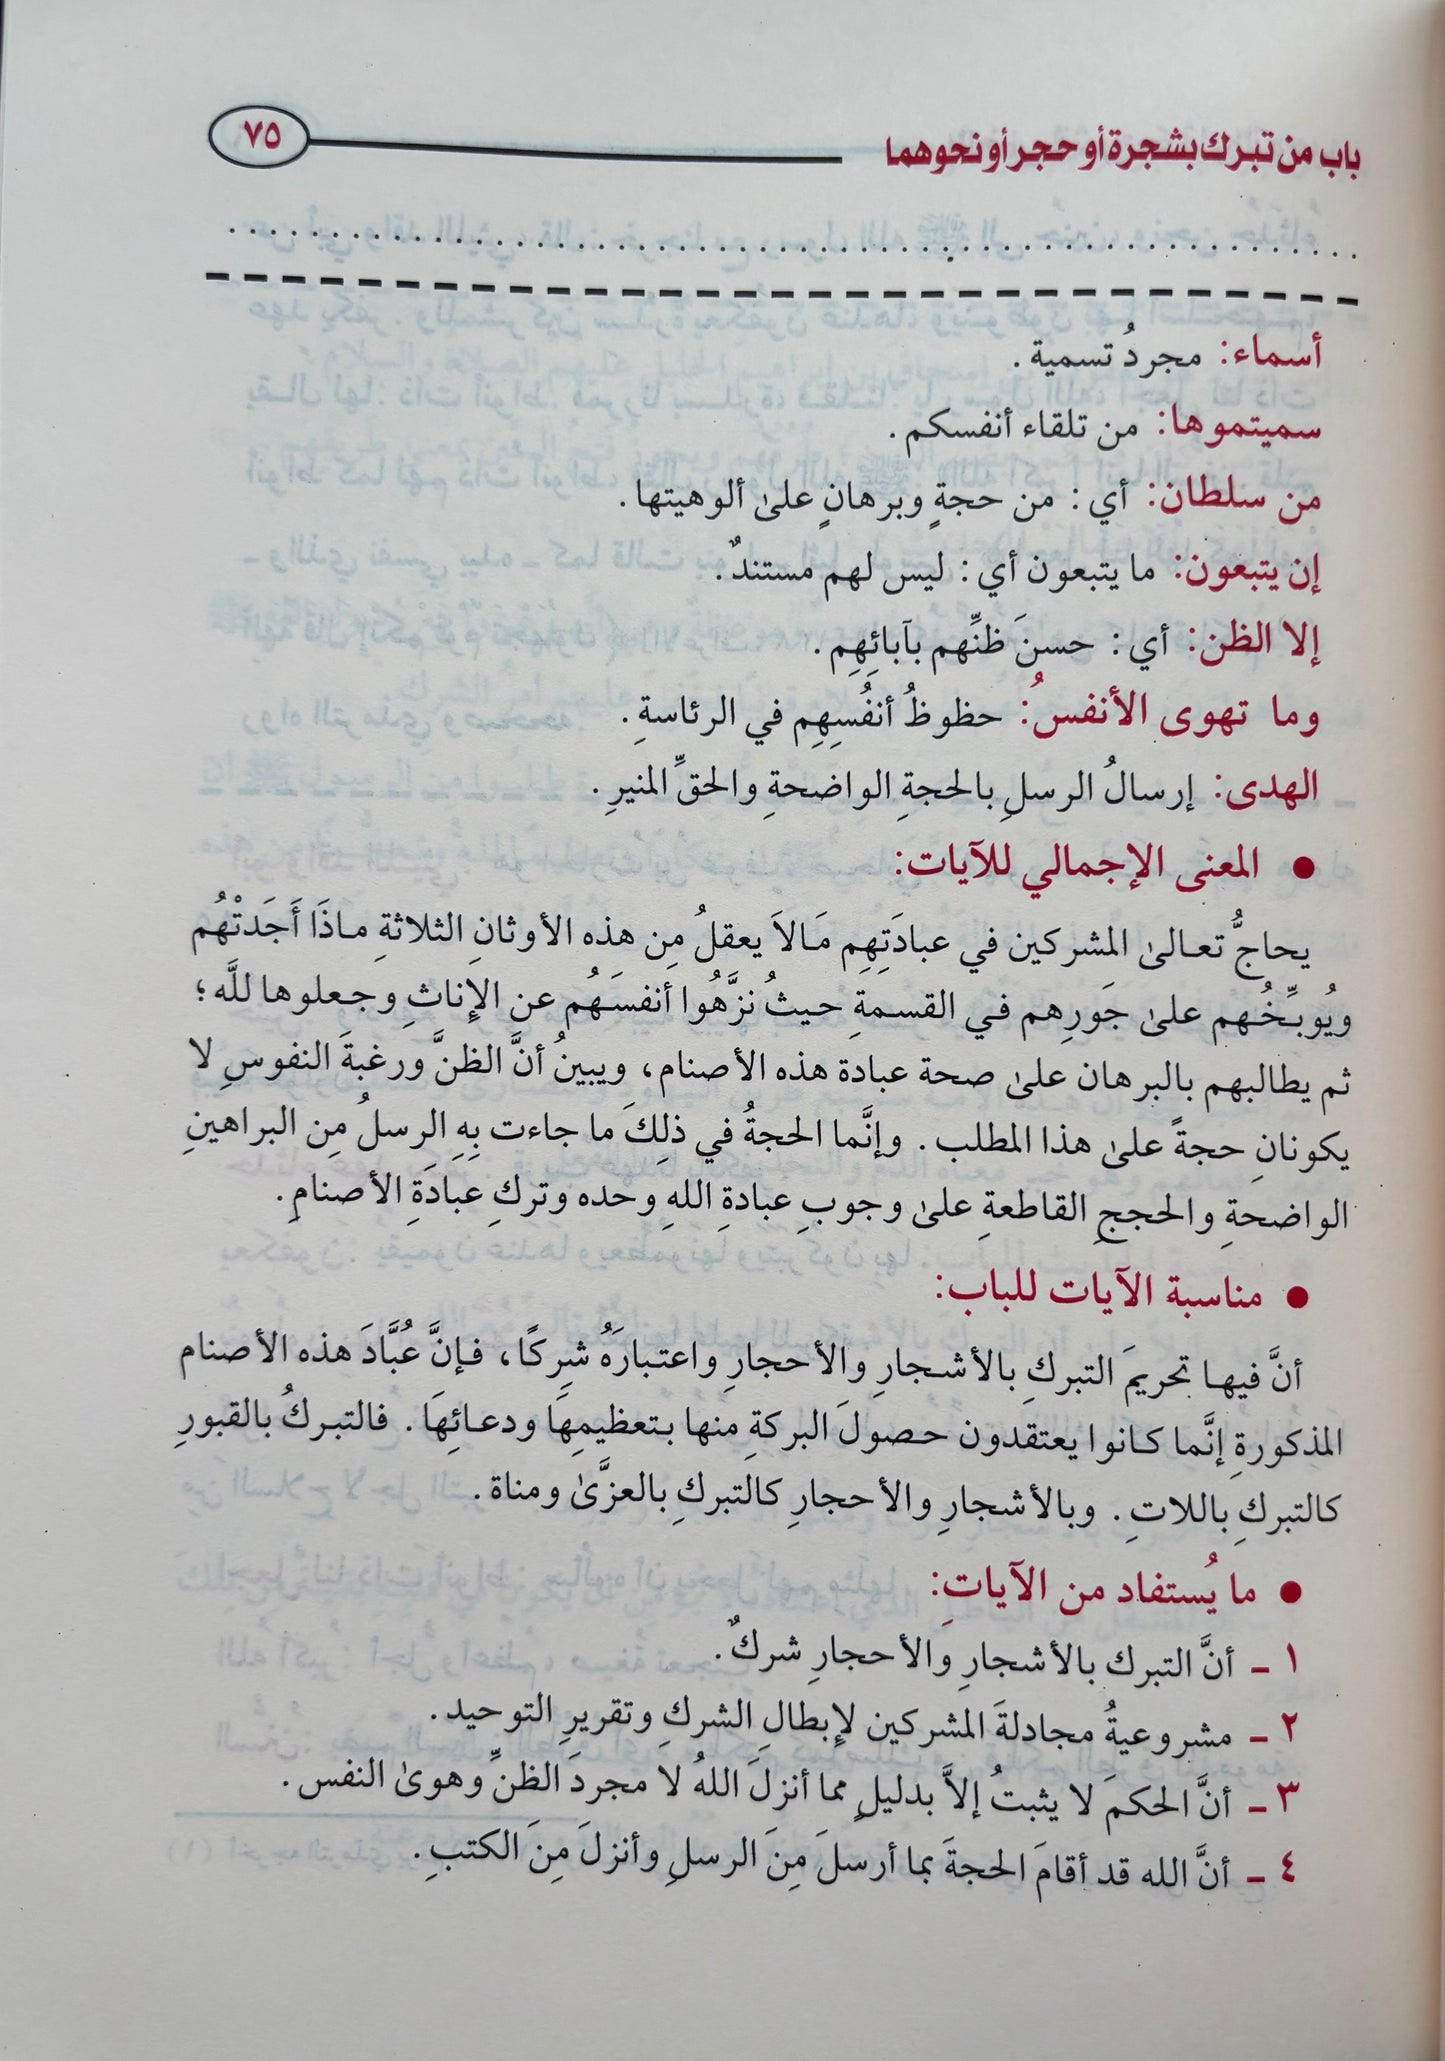 باب من تبرك بشجرة أو حجر أو نحوهما ٧٥
أسماء: مجردُ تسمية.
سميتموها: من تلقاء أنفسكم.
من سلطان: أي: من حجةٍ وبرهانٍ علىٰ ألوهيتها.
إن يتبعون: ما يتبعون أي: ليس لهم مستندٌ.
إلا الظن: أي: حسنَ ظنِّهم بآبائِهِم.
وما تهوى الأنفسُ: حظوظُ أنفُسِهِم في الرئاسةِ.
الهدى: إرسالُ الرسلِ بالحجةِ الواضحةِ والحقِّ المنيرِ.
● المعنى الإجمالي للآيات:
يحاجُّ تعالىٰ المشركين في عبادَتِهِم مَالاَ يعقلُ مِن هذه الأوثانِ الثلاثةِ ماذَا أَجَدتْهُم
ويُوبِّخُهم علىٰ جَورِهم في القسمةِ حيثُ نزَّهُوا أنفسَهُم عن الإناثِ وجعلوها للَّه؛
ثم يطالبهم بالبرهان علىٰ صحة عبادة هذه الأصنام، ويبينُ أنَّ الظنَّ ورغبةَ النفوسِ لا
يكونانِ حجةً علىٰ هذا المطلب. وإنَّما الحجةُ في ذلِكَ ما جاءت بِهِ الرسلُ مِن البراهينِ
الواضحةِ والحججِ القاطعةِ علىٰ وجوبِ عبادةِ اللهِ وحده وتركِ عبادَةِ الأصنامِ.
● مناسبة الآيات للباب:
أنَّ فيها تحريمَ التبركِ بالأشجارِ والأحجارِ واعتبارَهُ شركًا، فإنَّ عُبَّادَ هذه الأصنام
المذكورةِ إنَّما كانوا يعتقدون حصولَ البركةِ منها بتعظيمِهَا ودعائِهَا. فالتبركُ بالقبورِ
كالتبركِ باللاتِ. وبالأشجارِ والأحجارِ كالتبركِ بالعزَّىٰ ومناة.
● ما يُستفاد من الآياتِ:
١ ـ أنَّ التبرك بالأشجارِ والأحجارِ شركٌ.
٢ ـ مشروعيةُ مجادلةَ المشركين لإبطالِ الشركِ وتقريرِ التوحيد.
٣ ـ أنَّ الحكمَ لا يثبتُ إلاَّ بدليلٍ مما أنزلَ اللهُ لا مجردَ الظنِّ وهوىٰ النفس.
٤ ـ أنَّ الله قد أقامَ الحجةَ بما أرسلَ مِنَ الرسلِ وأنزلَ مِنَ الكتبِ.